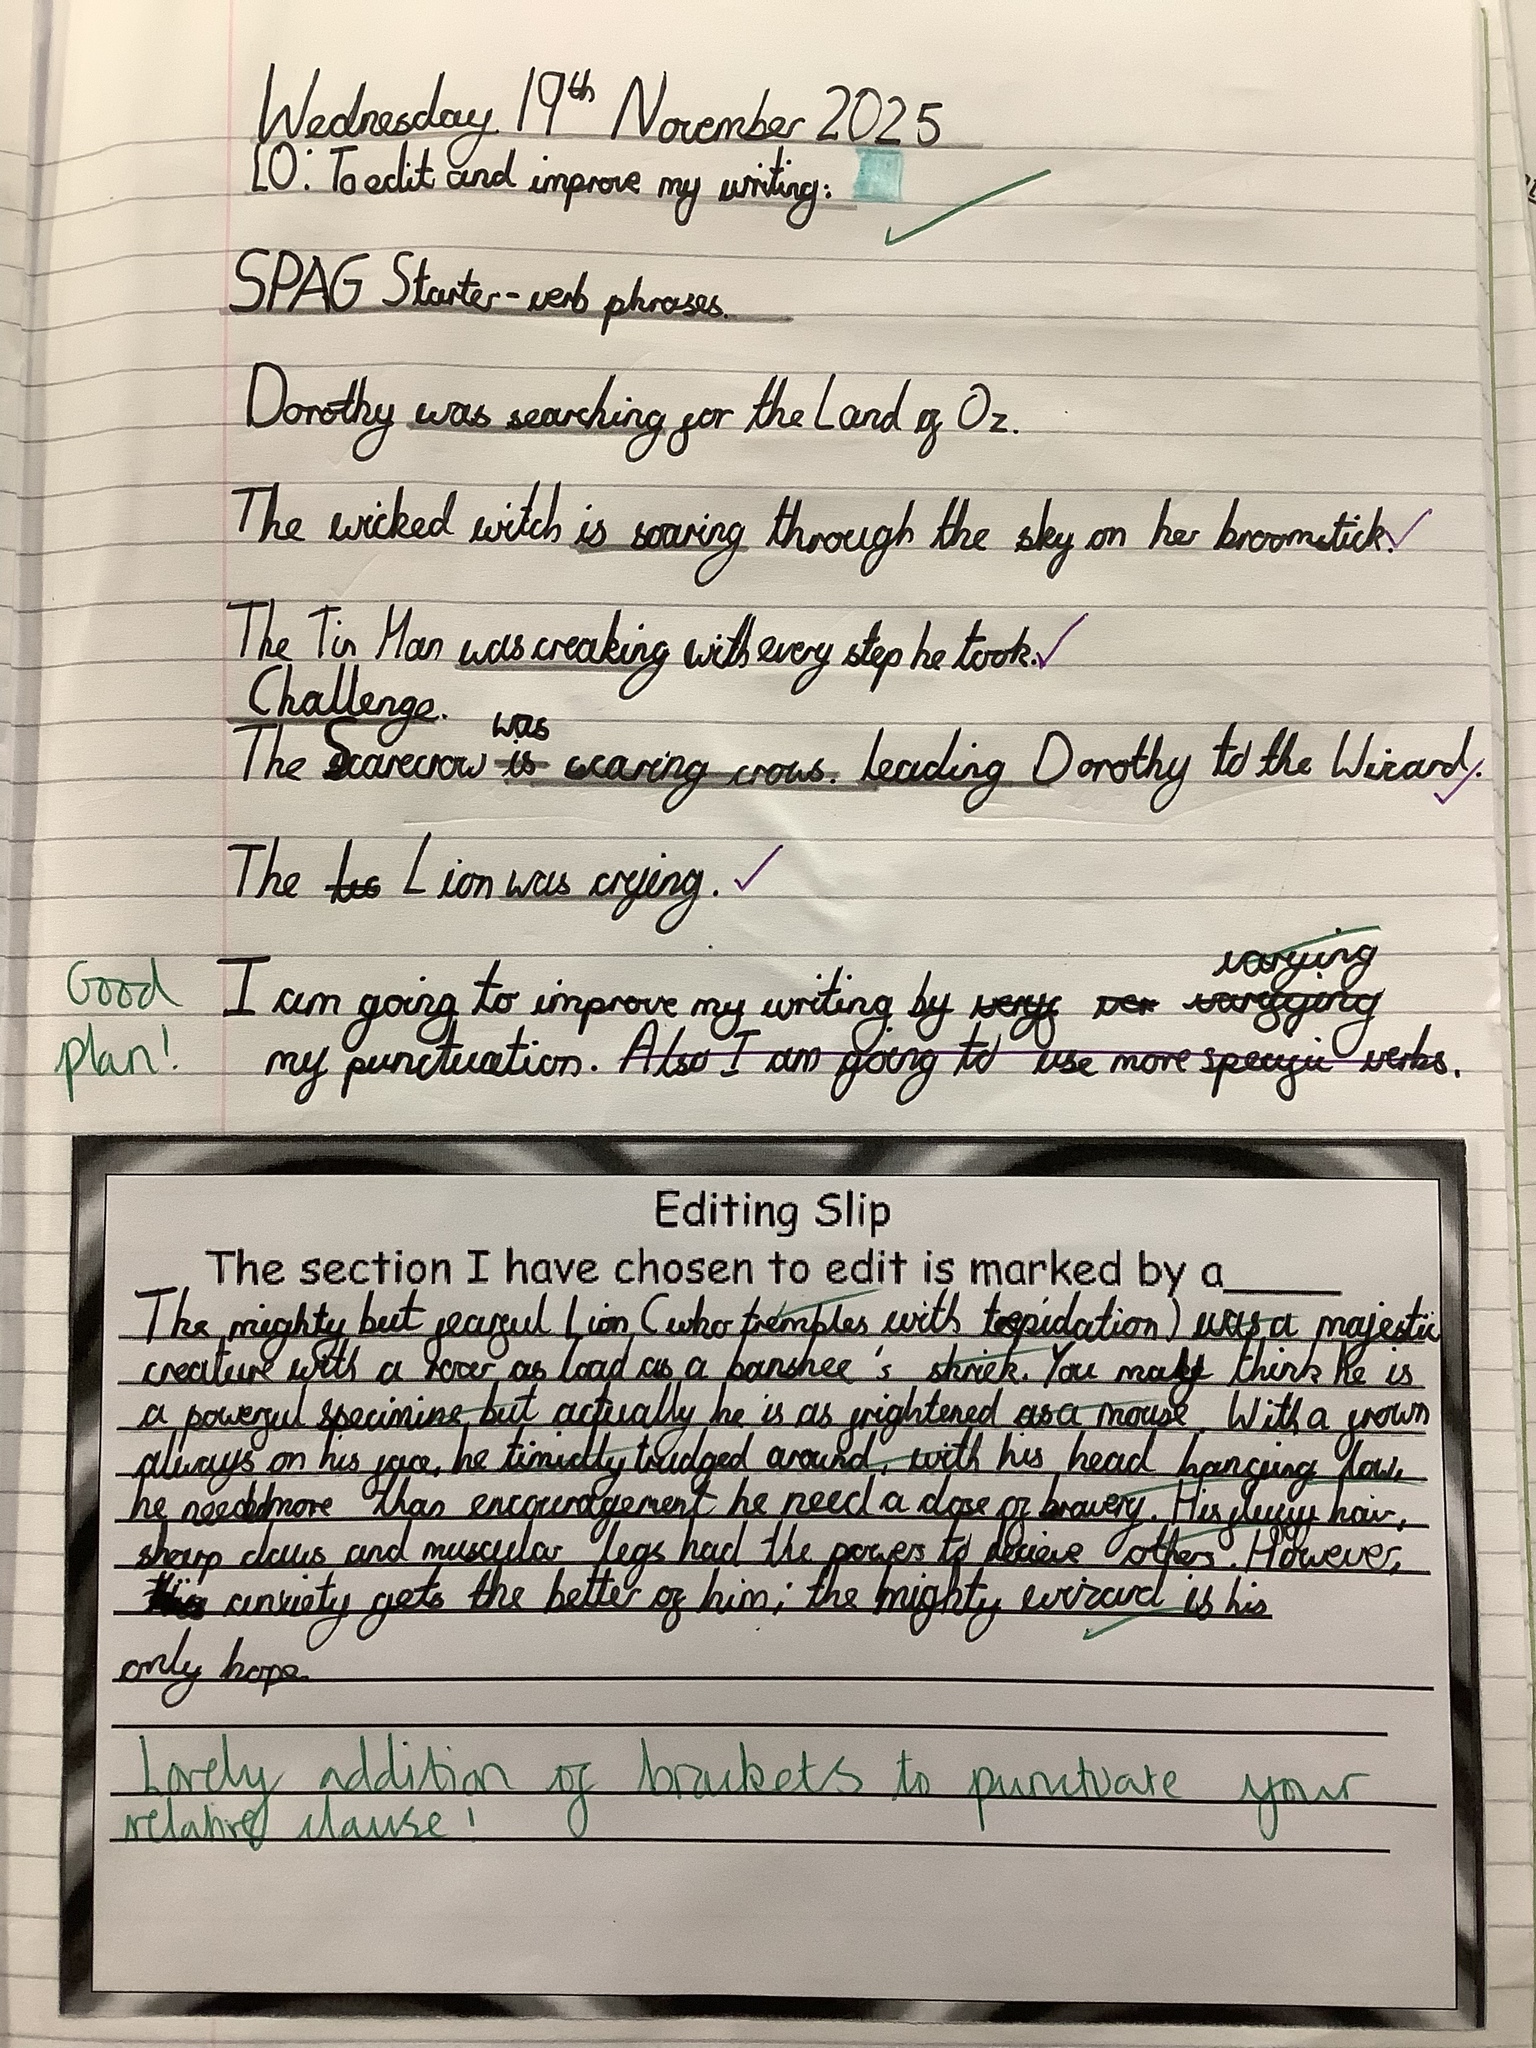 Wednesday 19th November 2025
LO: To edit and improve my writing:
SPAG Starter - verb phrases.
Dorothy was searching for the Land of Oz.
The wicked witch is soaring through the sky on her broomstick.
The Tin Man was creaking with every step he took.
Challenge.
was
The Scarecrow is scaring crows. leading Dorothy to the Wizard.
The Lion was crying.
varying
Good I am going to improve my writing by
plan! my punctuation. Also I am going to use more specific verbs.
Editing Slip
The section I have chosen to edit is marked by a____
The mighty but fearful Lion (who trembles with trepidation) was a majestic
creature with a roar as load as a banshee's shriek. You may think he is
a powerful specimine, but actually he is as frightened as a mouse. With a frown
always on his face, he timidly trudged around, with his head hanging low,
he needed more than encouragement he need a dose of bravery. His hair,
sharp claws and muscular legs had the powers to decieve others. However,
anxiety gets the better of him; the mighty wizard is his
only hope.
Lovely addition of brackets to punctuate your
relative clause!